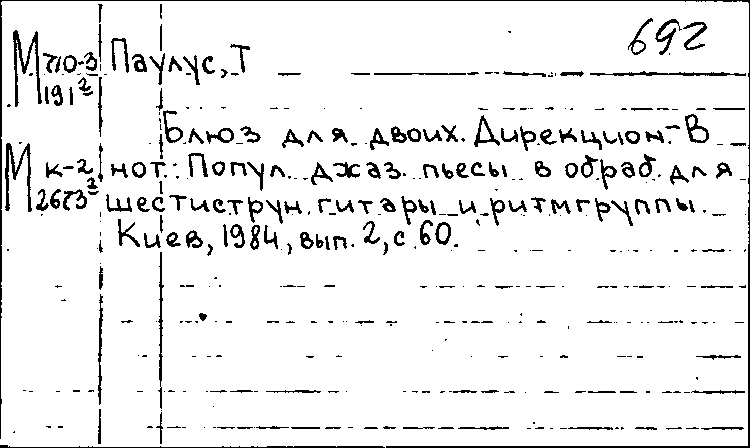 692
М 710-3 Паулус, Т
191²
Блюз для двоих. Дирекцион.- В
М к-2 нот: Попул. джаз. пьесы в обраб. для
2673² шестиструн. гитары и ритмгруппы.
Киев, 1984, вып. 2, с 60.